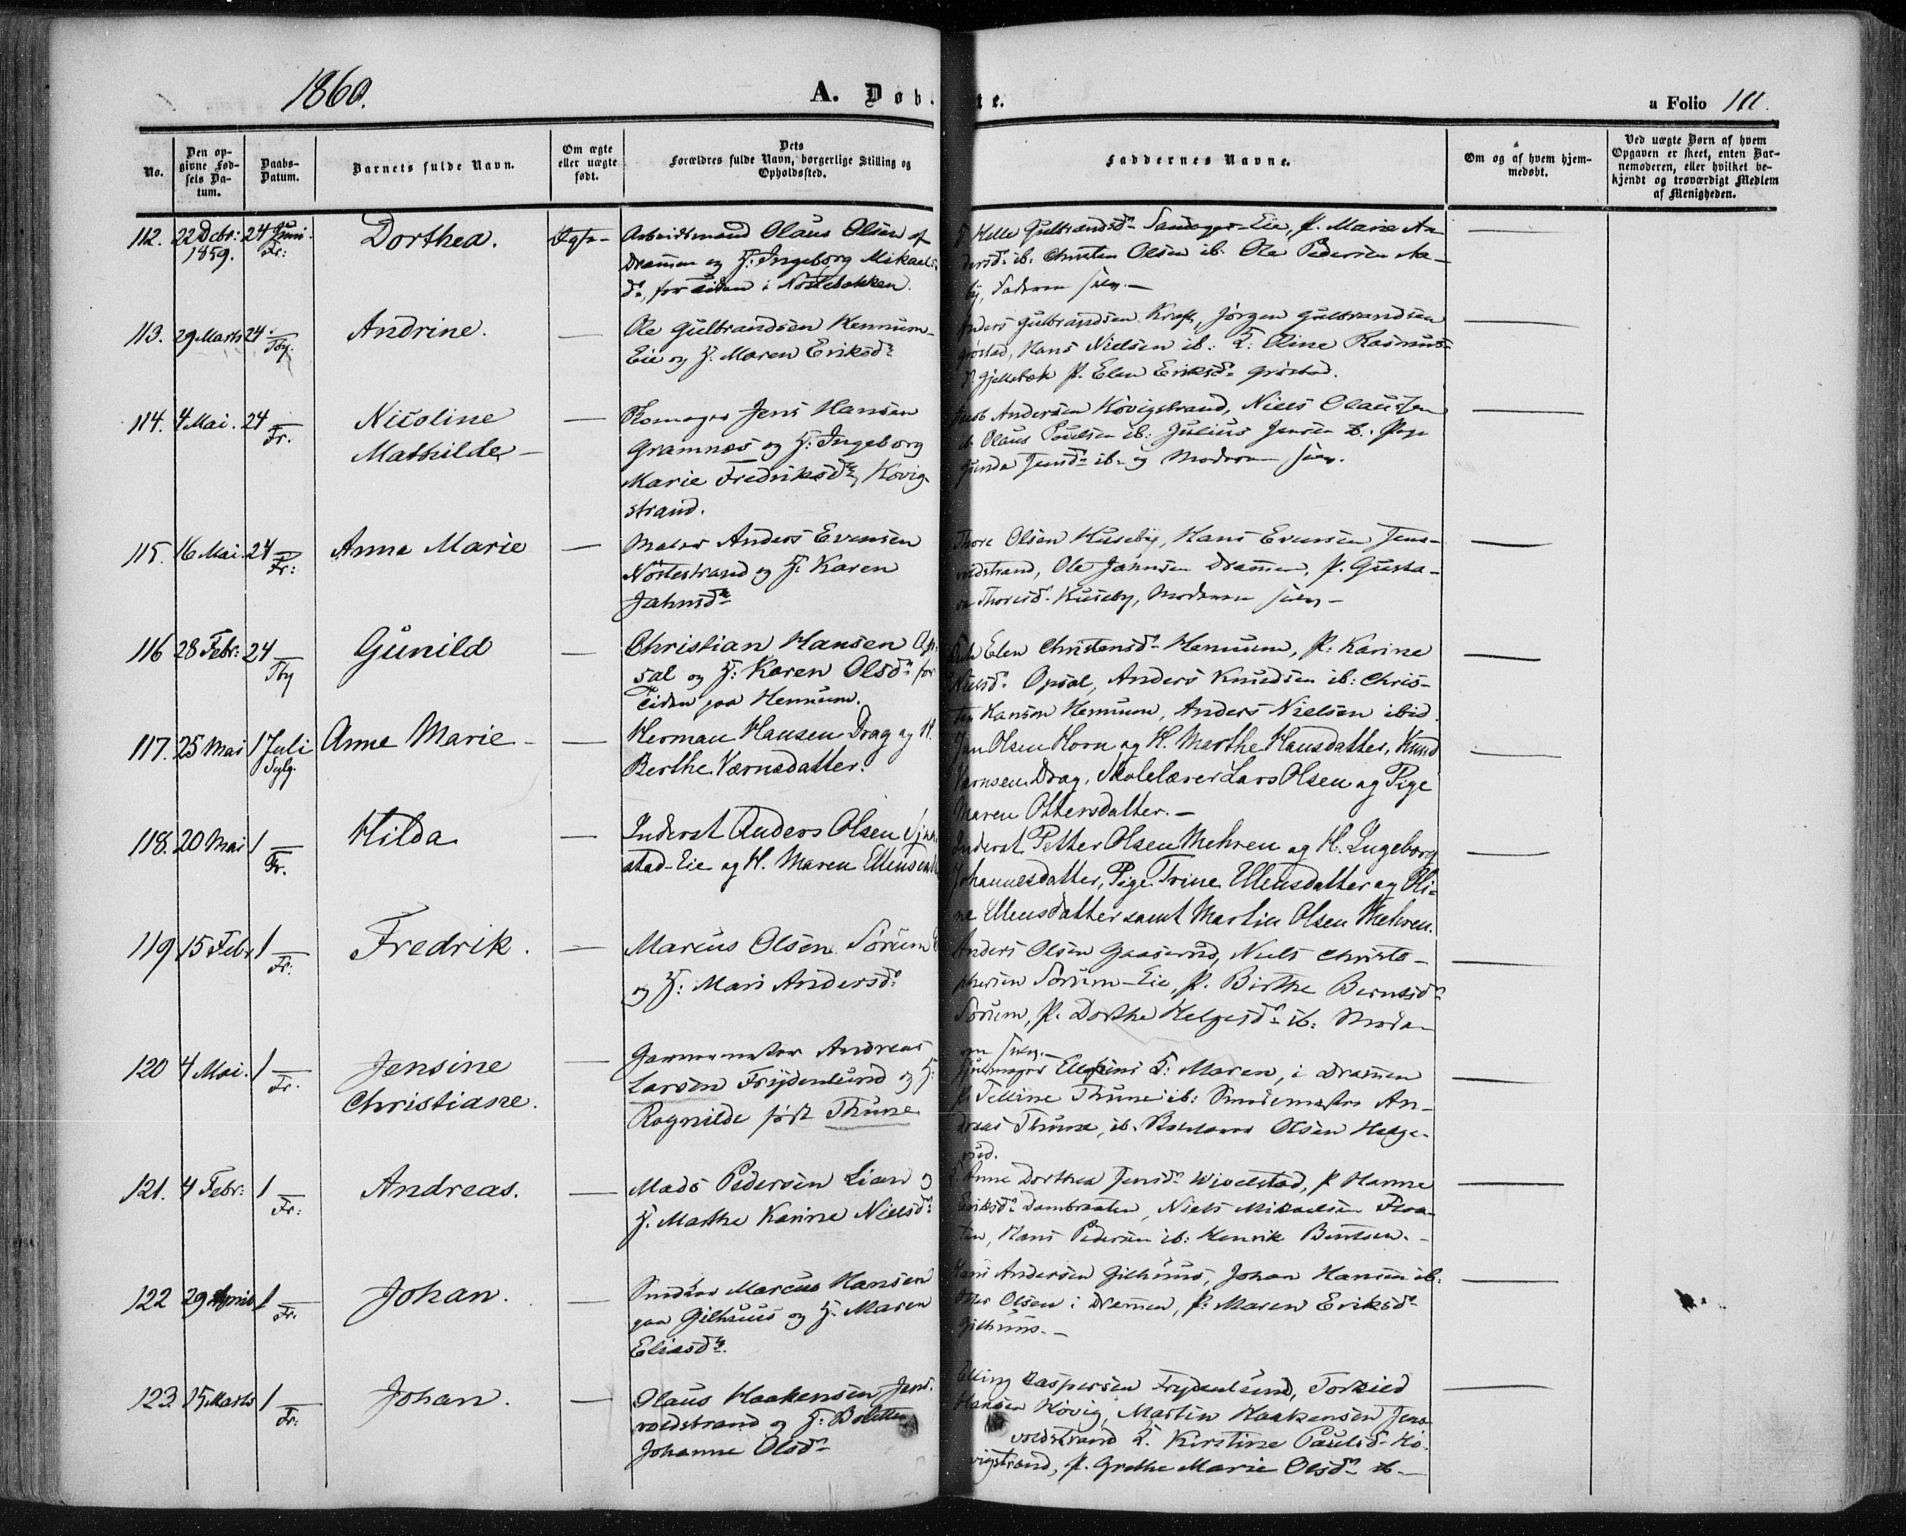 1860. A. Døb- te. a Folio 111.
No.
Den opgivne Fødsels Datum.
Daabs-Datum.
Barnets fulde Navn.
Om ægte eller uægte født.
Dets Forældres fulde Navn, borgerlige Stilling og Opholdssted.
Faddernes Navne.
Om og af hvem hjemmedøbt.
Ved uægte Børn af hvem Opgaven er skeet, enten Barnemoderen, eller hvilket bekjendt og troværdigt Medlem af Menigheden.
112. 22 Dcbr: 1859. 24 Juni Fr: Dorthea. Ægte- Arbeidsmand Olaus Olsen af
Drammen og H: Ingeborg Mikaels-
dr., for Tiden i Nøstebakken.
Helle Gulbrandsdr. Eie, P. Marie An-
dersdr. ib. Christen Olsen ib. Ole Pedersen Aa-
by, Faderen selv.—
113. 29 Marts 24 — Tby. Andrine. — Ole Gulbrandsen Hennum-
Eie og H: Maren Eriksdr.
Anders Gulbrandsen Kraft, Jørgen Gulbrandsen
Grøstad, Hans Nielsen ib: K: Eline Rasmus-
dr. Gjellebæk P. Elen Eriksdr. Grøstad.
114. 4 Mai. 24 — Fr. Nicoline
Mathilde, — Jens Hansen
Gramnæs og H: Ingeborg
Marie Fredriksdr., Høvig-
strand.
Jacob Andersen Høvigstrand, Niels Olaussen
ib. Olaus Poulsen ib: Julius Jensen ib. Pige
Gunda Jensdr. ib. og Moderen selv.
115. 16 Mai. 24 — Fr: Anne Marie — Maler Anders Evensen
Nøstestrand og H: Karen
Jahnsdr.
Thore Olsen Huseby, Hans Evensen Jens-
voldstrand, Ole Jahnsen Drammen, P. Gusta-
va Thoresdr. Huseby, Moderen selv—
116 28 Febr: 24 — Tby Gunild — Christian Hansen Op-
sal og H: Karen Olsdr. for
Tiden paa Hennum.
Elen Christensdr. Hennum, P. Karine
Nielsdr. Opsal, Anders Knudsen ib: Chris-
ten Hansen Hennum, Anders Nielsen ibid.
117. 25 Mai 1 Juli Sylg. Anne Marie — — Herman Hansen Drag og H.
Berthe Værnsdatter.
Jan Olsen Horn og H. Marthe Hansdatter, Knud
Værnsen Drag, Skolelærer Lars Olsen og Pige
Maren Ottersdatter.—
118. 20 Mai 1 — Fr. Hilda — Inderst Anders Olsen
stad-Eie og H. Maren Ellensdatter
Inderst Petter Olsen Mehren og H. Ingeborg
Johannesdatter, Pige Trine Ellensdatter og Oli-
ne Ellensdatter samt Martin Olsen Mehren.
119 15 Febr 1 — Fr: Fredrik. — Marcus Olsen Sørum
og H: Mari Andersdr.
Anders Olsen Gaaserud, Niels Christo-
phersen Sørum-Eie, P. Birthe Berntsdr.
Sørum, P. Dorthe Helgesdr. ib: Moder-
en selv.—
120 4 Mai. 1 — Fr. Jensine
Christiane. — Garvermester Andreas
Larsen Frydenlund og H:
Ragnilde født Thune
K: Maren, i Drammen
P. Telline Thune ib: Smedemester An-
dreas Thune, ib. Olsen Helge-
rud.
121. 4 Febr: 1 — Fr: Andreas. — Mads Pedersen Lian og
H. Marthe Karine Nielsdr.
K. Anne Dorthea Jensdr. Wivelstad, P. Hanne
Eriksdr. Dambraaten, Niels Mikaelsen Flaa-
ten, Hans Pedersen ib: Henrik Berntsen.—
122 29 April 1 — Fr. Johan. — Snedker Marcus Hansen
paa Gilhuus og H. Maren
Eliasdr.
Hans Andersen Gilhuus, Johan Hansen ib:
Otter Olsen i Drammen, P: Maren Eriksdr.
Gilhuus.—
123 15 Marts 1 — Fr: Johan. — Olaus Haakensen Jens-
voldstrand og H: Bolette
Johanne Olsdr.
Elling Caspersen Frydenlund, Torkild
Hansen Høvig, Martin Haakensen Jens-
voldstrand K. Kirstine Paulsdr. Hø-
vigstrand, P. Grethe Marie Olsdr. ib—